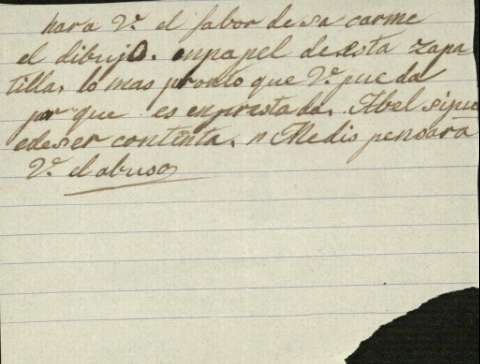 hara V. el fabor de sacarme
el dibujo. enpapel de esta zapa
tilla. lo mas pronto que V. pueda
por que es enprestada. Abel sipu
edeser contenta. n Medis pensara
V. el abuso